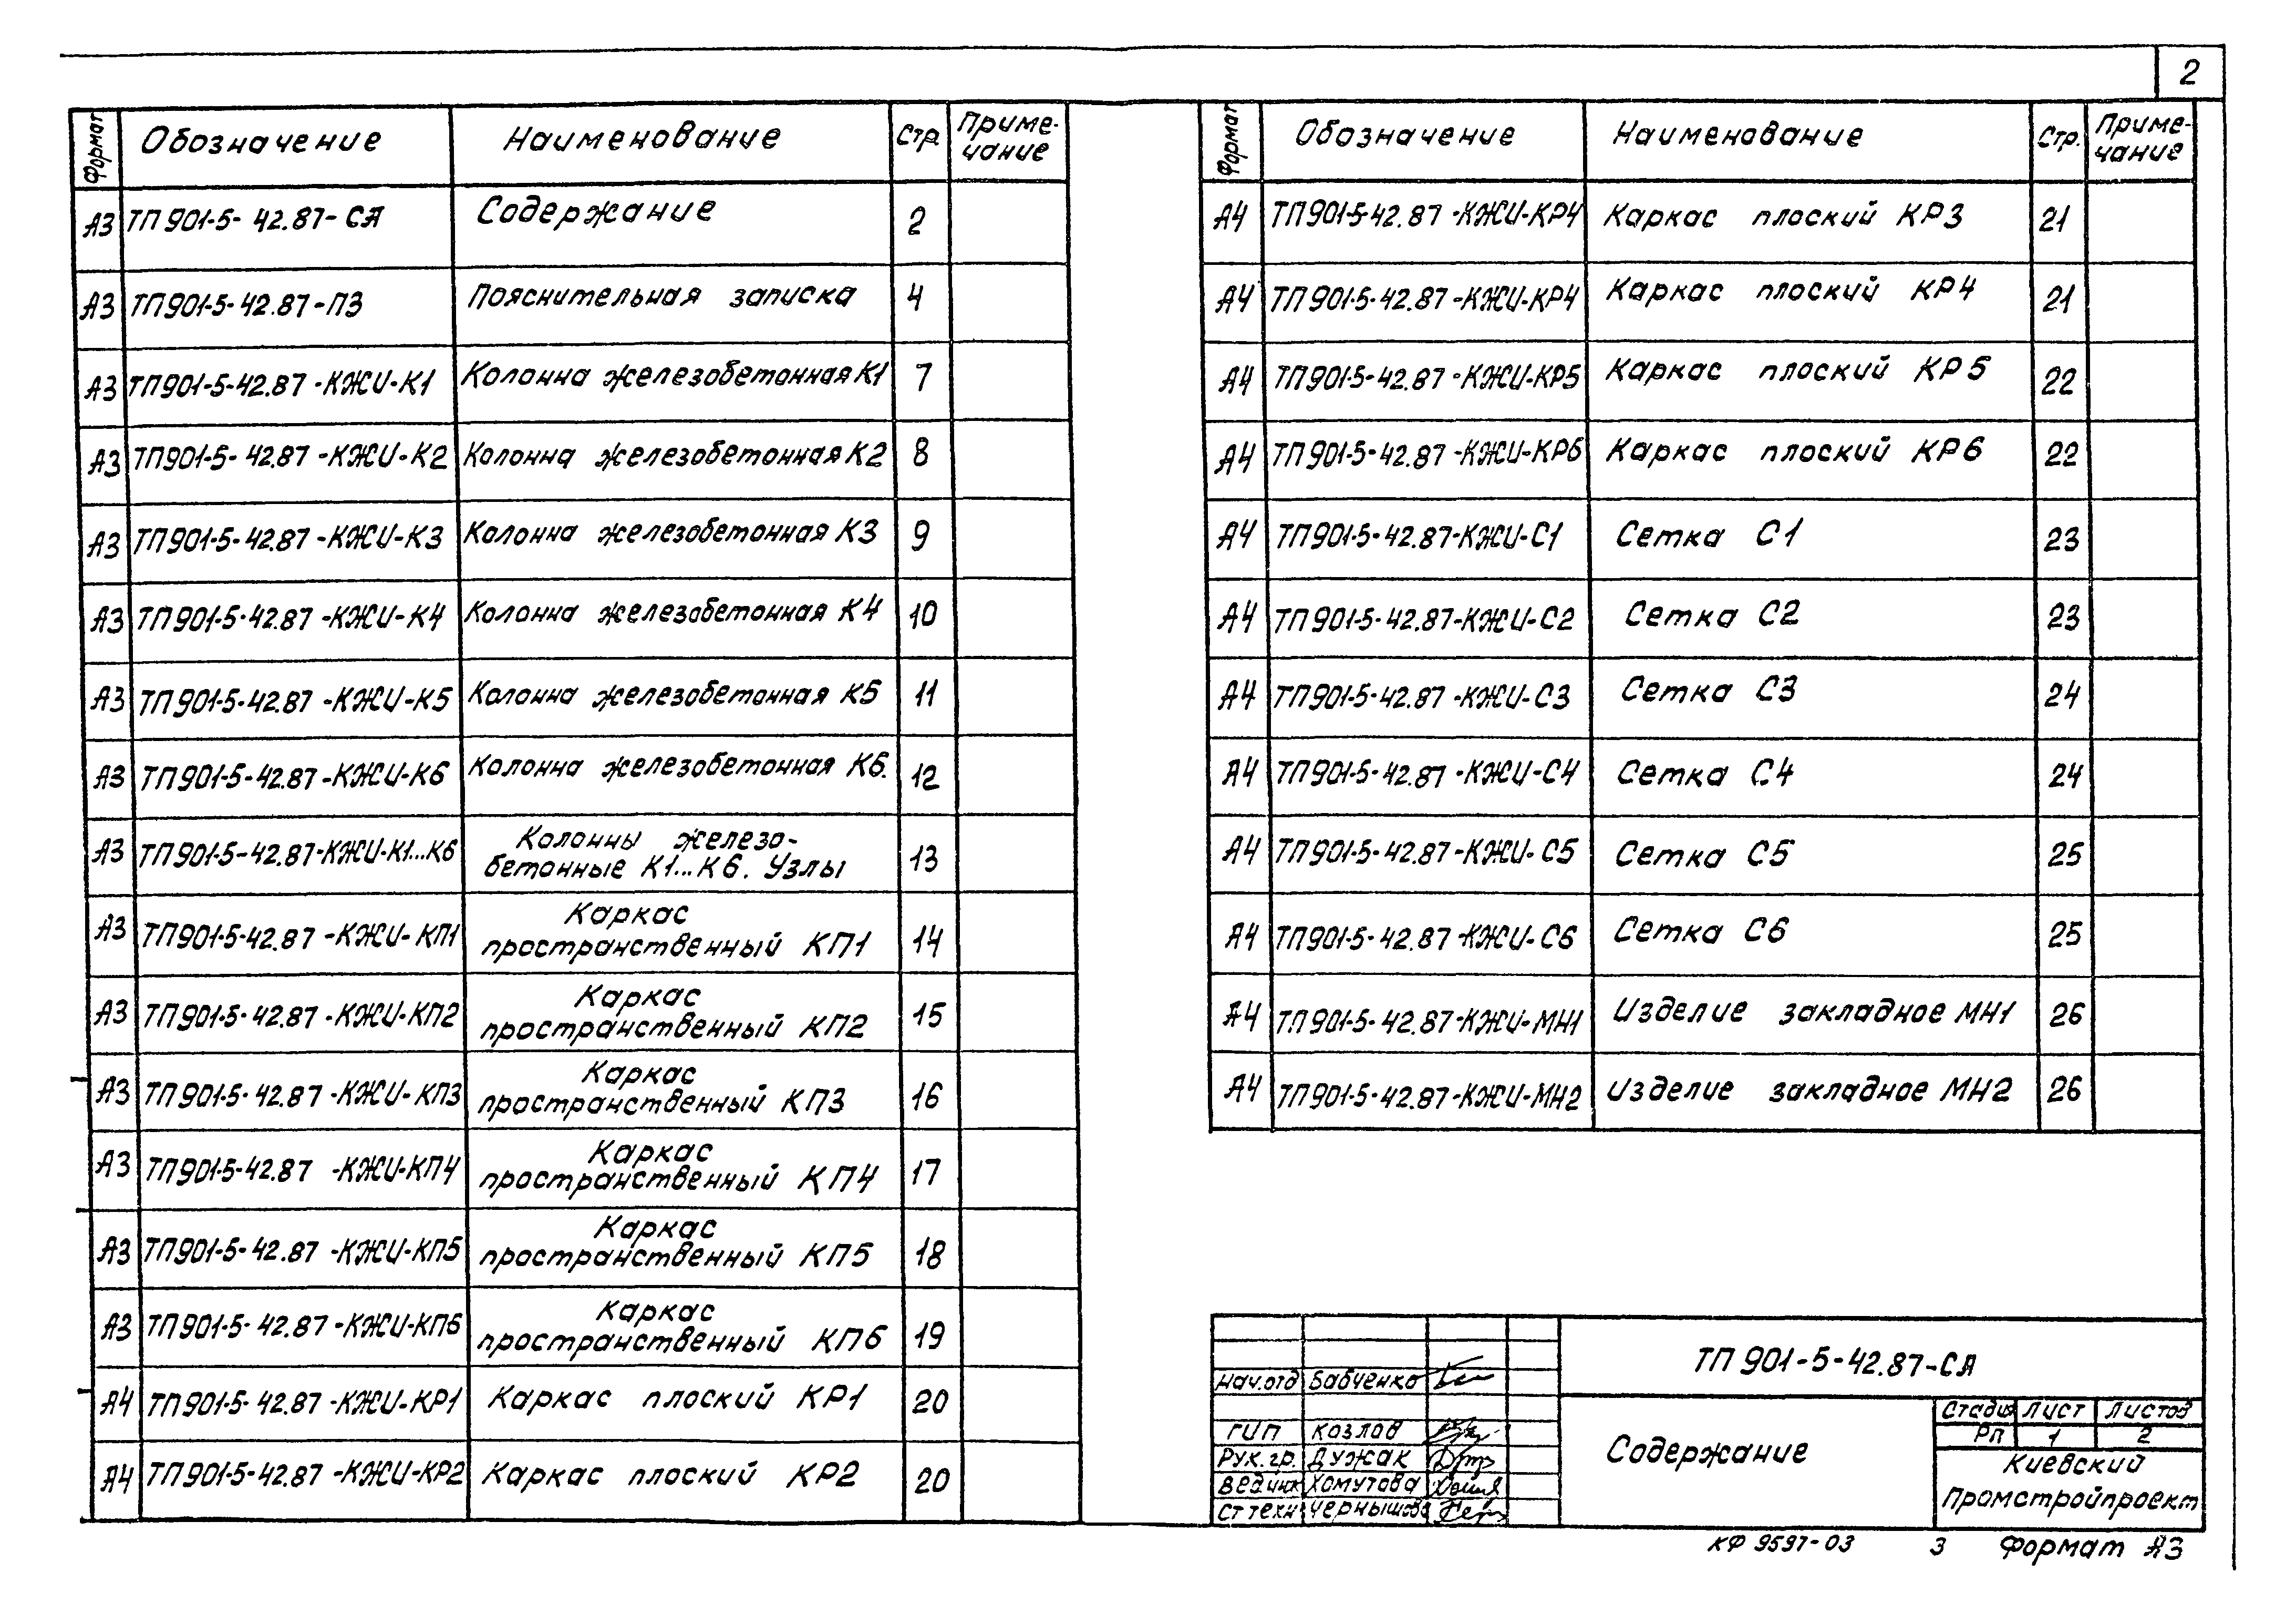 2
Формат Обозначение Наименование Стр. Приме-
чание
А3 ТП 901-5-42.87-СА Содержание 2
А3 ТП901-5-42.87-ПЗ Пояснительная записка 4
А3 ТП901-5-42.87-КЖИ-К1 Колонна железобетонная К1 7
А3 ТП901-5-42.87-КЖИ-К2 Колонна железобетонная К2 8
А3 ТП901-5-42.87-КЖИ-К3 Колонна железобетонная К3 9
А3 ТП901-5-42.87-КЖИ-К4 Колонна железобетонная К4 10
А3 ТП901-5-42.87-КЖИ-К5 Колонна железобетонная К5 11
А3 ТП901-5-42.87-КЖИ-К6 Колонна железобетонная К6. 12
А3 ТП901-5-42.87-КЖИ-К1...К6 Колонны железо- 13
бетонные К1...К6. Узлы
А3 ТП901-5-42.87-КЖИ-КП1 Каркас 14
пространственный КП1
А3 ТП901-5-42.87-КЖИ-КП2 Каркас 15
пространственный КП2
А3 ТП901-5-42.87-КЖИ-КП3 Каркас 16
пространственный КП3
А3 ТП901-5-42.87-КЖИ-КП4 Каркас 17
пространственный КП4
А3 ТП901-5-42.87-КЖИ-КП5 Каркас 18
пространственный КП5
А3 ТП901-5-42.87-КЖИ-КП6 Каркас 19
пространственный КП6
А4 ТП901-5-42.87-КЖИ-КР1 Каркас плоский КР1 20
А4 ТП901-5-42.87-КЖИ-КР2 Каркас плоский КР2 20
Формат Обозначение Наименование Стр. Приме-
чание
А4 ТП901-5-42.87-КЖИ-КР4 Каркас плоский КР3 21
А4 ТП901-5-42.87-КЖИ-КР4 Каркас плоский КР4 21
А4 ТП901-5-42.87-КЖИ-КР5 Каркас плоский КР5 22
А4 ТП901-5-42.87-КЖИ-КР6 Каркас плоский КР6 22
А4 ТП901-5-42.87-КЖИ-С1 Сетка С1 23
А4 ТП901-5-42.87-КЖИ-С2 Сетка С2 23
А4 ТП901-5-42.87-КЖИ-С3 Сетка С3 24
А4 ТП901-5-42.87-КЖИ-С4 Сетка С4 24
А4 ТП901-5-42.87-КЖИ-С5 Сетка С5 25
А4 ТП901-5-42.87-КЖИ-С6 Сетка С6 25
А4 ТП901-5-42.87-КЖИ-МН1 Изделие закладное МН1 26
А4 ТП901-5-42.87-КЖИ-МН2 Изделие закладное МН2 26
ТП 901-5-42.87-СА
Нач.отд Бабченко
ГИП Козлов
Рук.гр. Дужак
Вед.инж Хомутова
Ст техн Чернышова
Содержание
Стадия Лист Листов
РП 1 2
Киевский
Промстройпроект
КФ 9597-03 3 Формат А3